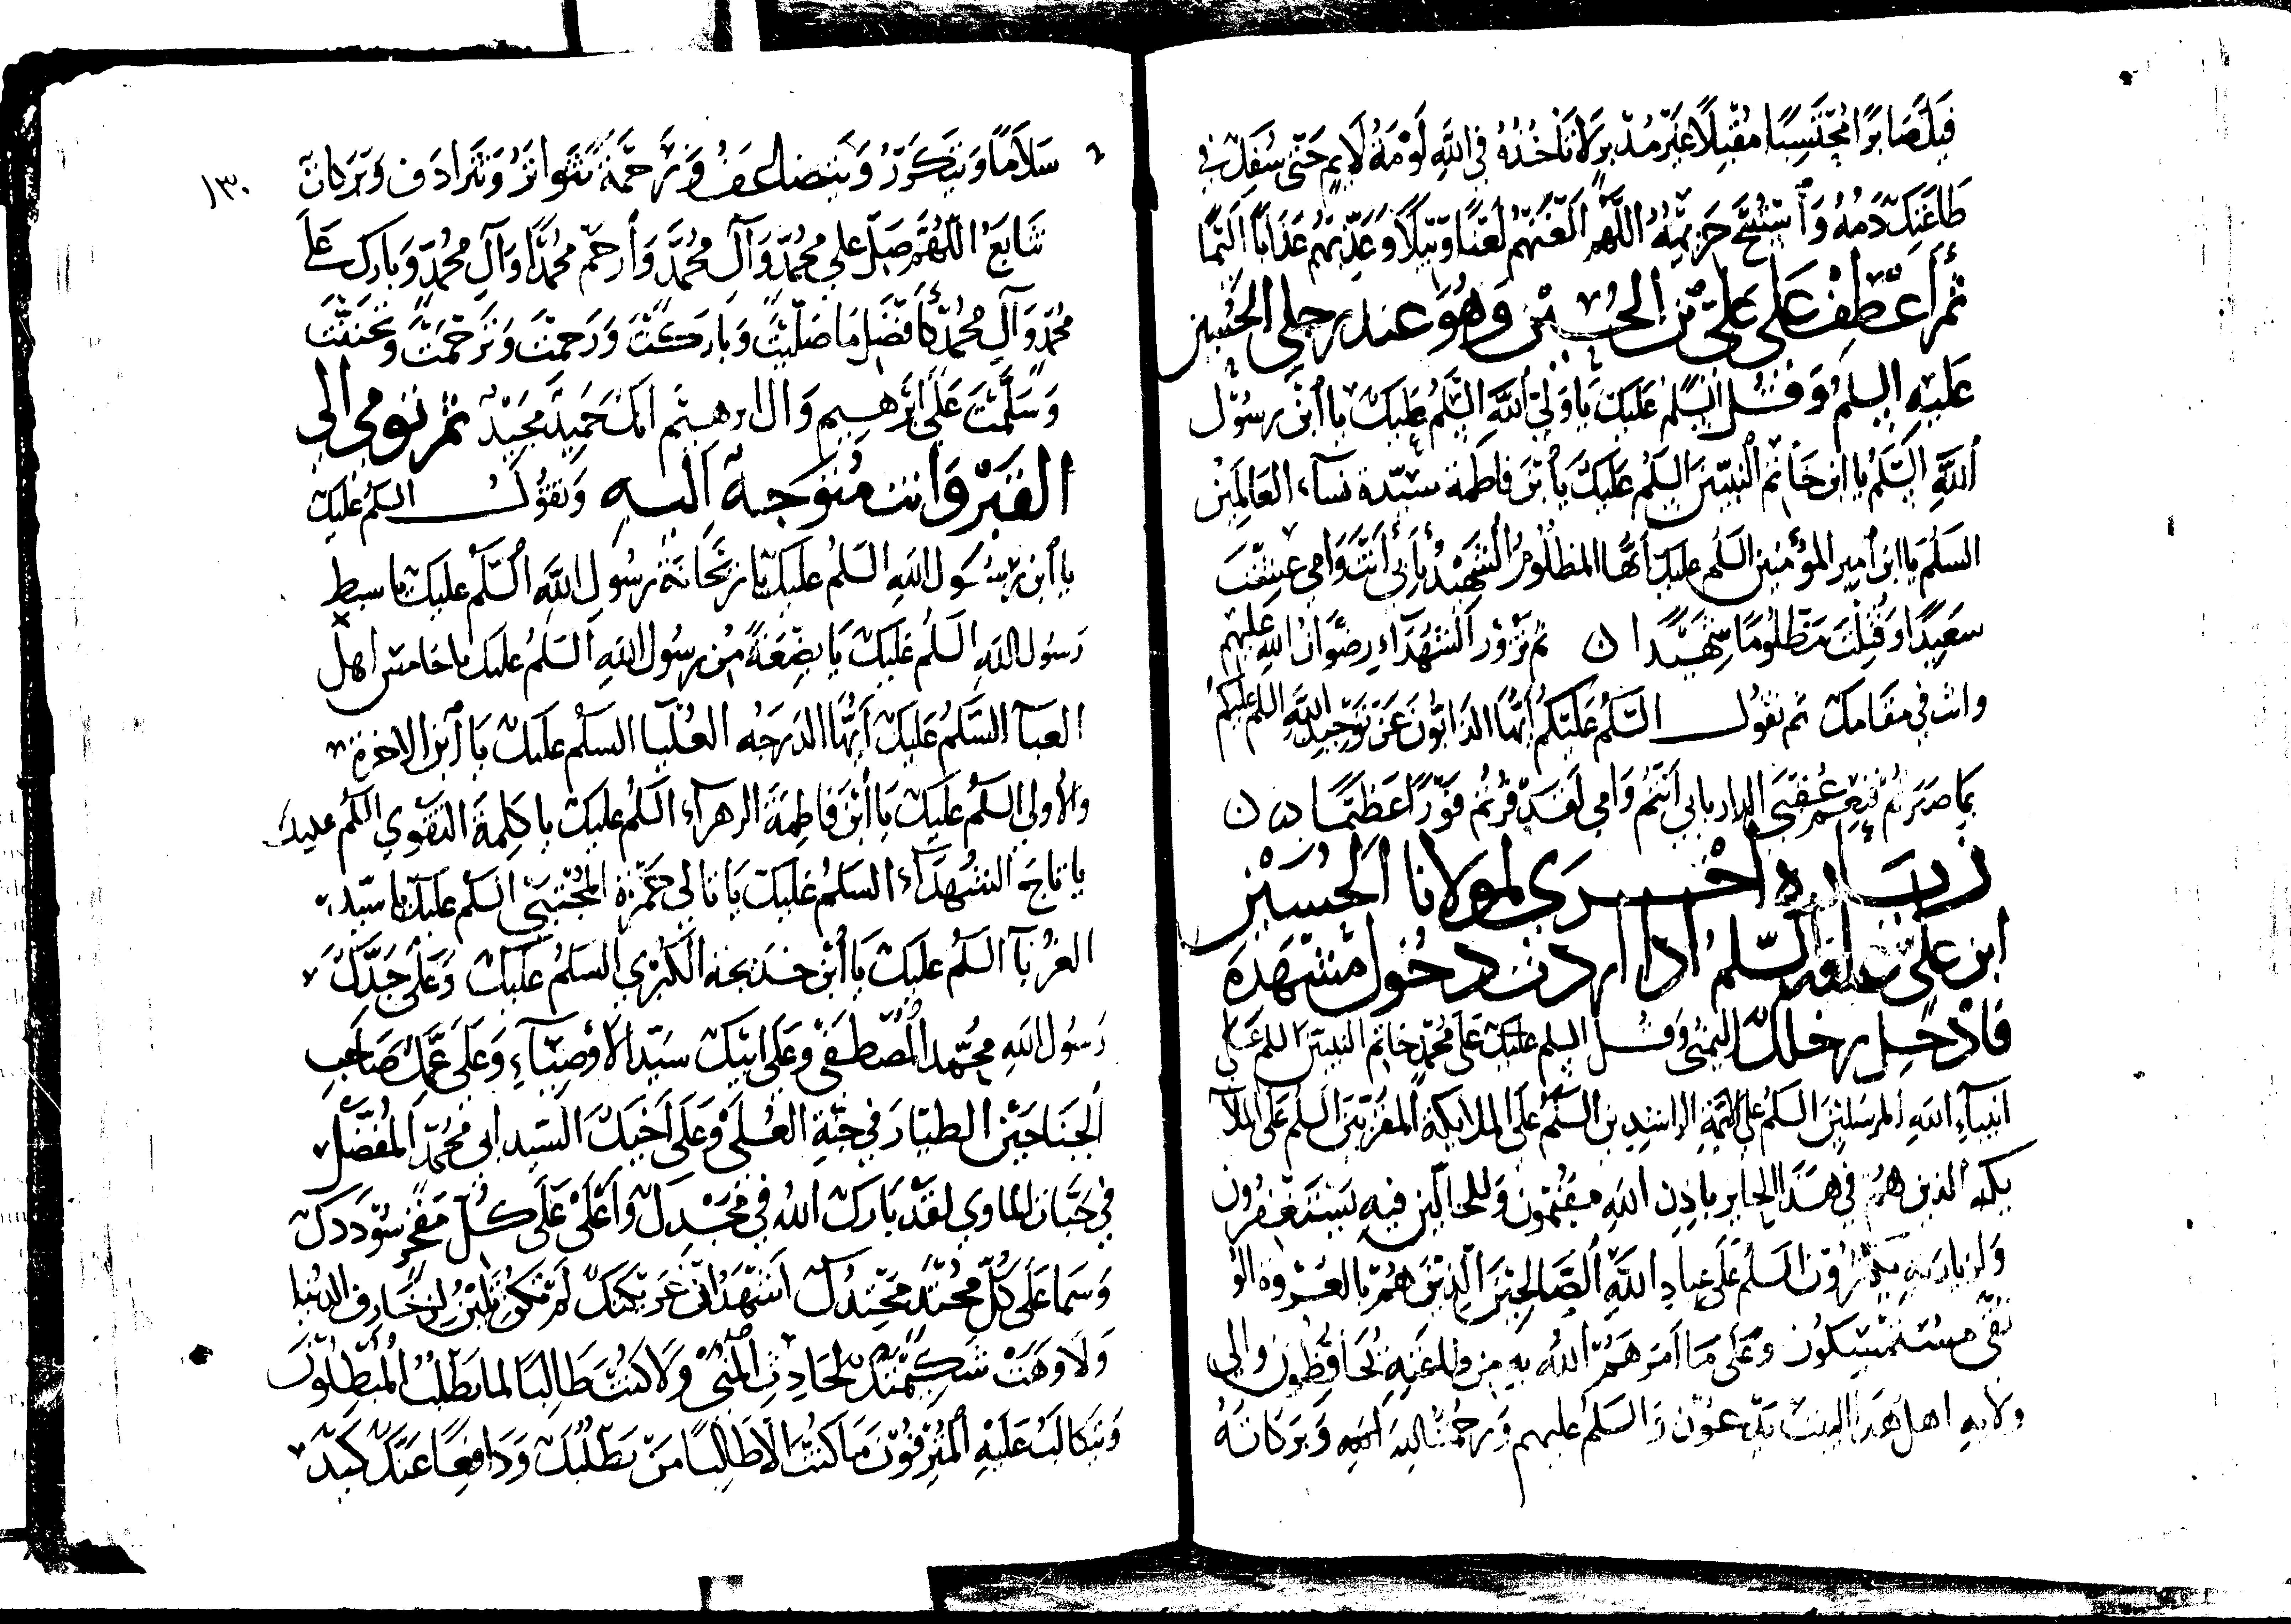 قتل صابرا محتسبا مقبلا غير مدبر لا تاخذه في الله لومة لايم حتى سفك في
طاعتك دمه واستبيح حريمه اللهم العنهم لعنا وبيلا وعذبهم عذابا اليما
ثم اعطف على علي بن الحسين وهو عند رجلي الحسين
عليه السلم وقل السلم عليك يا ولي الله السلم عليك يا ابن رسول
الله السلم يا ابن خاتم النبيين السلم عليك يا بن فاطمة سيدة نسآء العالمين
السلم يا ابن امير المؤمنين السلم عليك ايها المظلوم الشهيد بابي انت وامي عشت
سعيدا وقتلت مظلوما شهيدا ن ثم تزور الشهدآء رضوان الله عليهم
وانت في مقامك ثم تقول السلم عليكم ايها الذابون عن توحيد الله السلم عليكم
بما صبرتم فنعم عقبى الدار بابي انتم وامي لقد فزتم فوزا عظيما ن
زيارة اخرى لمولانا الحسين
ابن علي عليه السلم اذا اردت دخول مشهده
فادخل رجلك اليمنى وقل السلم عليك على محمد خاتم النبيين السلم على
انبيآء الله المرسلين السلم على الائمة الراشدين السلم على الملايكة المقربين السلم على الملآ
يكه الذين هم في هذا الحاير باذن الله مقيمون وللحآلين فيه يستغفرون
ولزيارته يذكرون السلم على عباد الله الصالحين الذين هم بالعروه الو
ثقى مستمسكون وعلى ما امرهم الله به من طاعته يحافظون والى
ولايه اهل هذا البيت يدعون والسلم عليهم ورحمت الله وبركاته
١٣٠
سلاما ويتكرر ويتضاعف ورحمة تتواتر وتترادف وبركات
تتابع اللهم صل على محمد وآل محمد وارحم محمدا وآل محمد وبارك على
محمد وآل محمد كافضل ما صليت وباركت ورحمت وترحمت وتحننت
وسلمت على ابرهيم وال ابرهيم انك حميد مجيد ثم تومي الى
القبر وانت متوجه اليه وتقول السلم عليك
يا ابن رسول الله السلم عليك يا ريحانة رسول الله السلم عليك يا سبط
رسول الله السلم عليك يا بضعة من رسول الله السلم عليك يا خامس اهل
العبآ السلم عليك ايها الدرجه العليا السلم عليك يا ابن الاخرة
والاولى السلم عليك يا ابن فاطمة الزهرآء السلم عليك يا كلمة التقوي السلم عليك
يا تاج الشهدآء السلم عليك يا تالي حمزة المجتبى السلم عليك يا سيد
الغربآ السلم عليك يا ابن خديجه الكبرى السلم عليك وعلى جدك
رسول الله محمد المصطفى وعلى ابيك سيد الاوصيآء وعلى عمك صاحب
الجناحين الطيار في جنة العلى وعلى اخيك السيد ابي محمد المفضل
في جنان الماوي لقد بارك الله في مجدك واعلى على كل مفخر سوددك
وسما على كل محتد محتدك اشهد ان عريكتك لم تكن تلين لزخارف الدنيا
ولا وهت شكيمتك لحادث المنى ولا كنت طالبا لما يطلب المبطلون
ويتكالب عليه المترفون ما كنت الا طالبا من يطلبك ودافعا عنك كيد